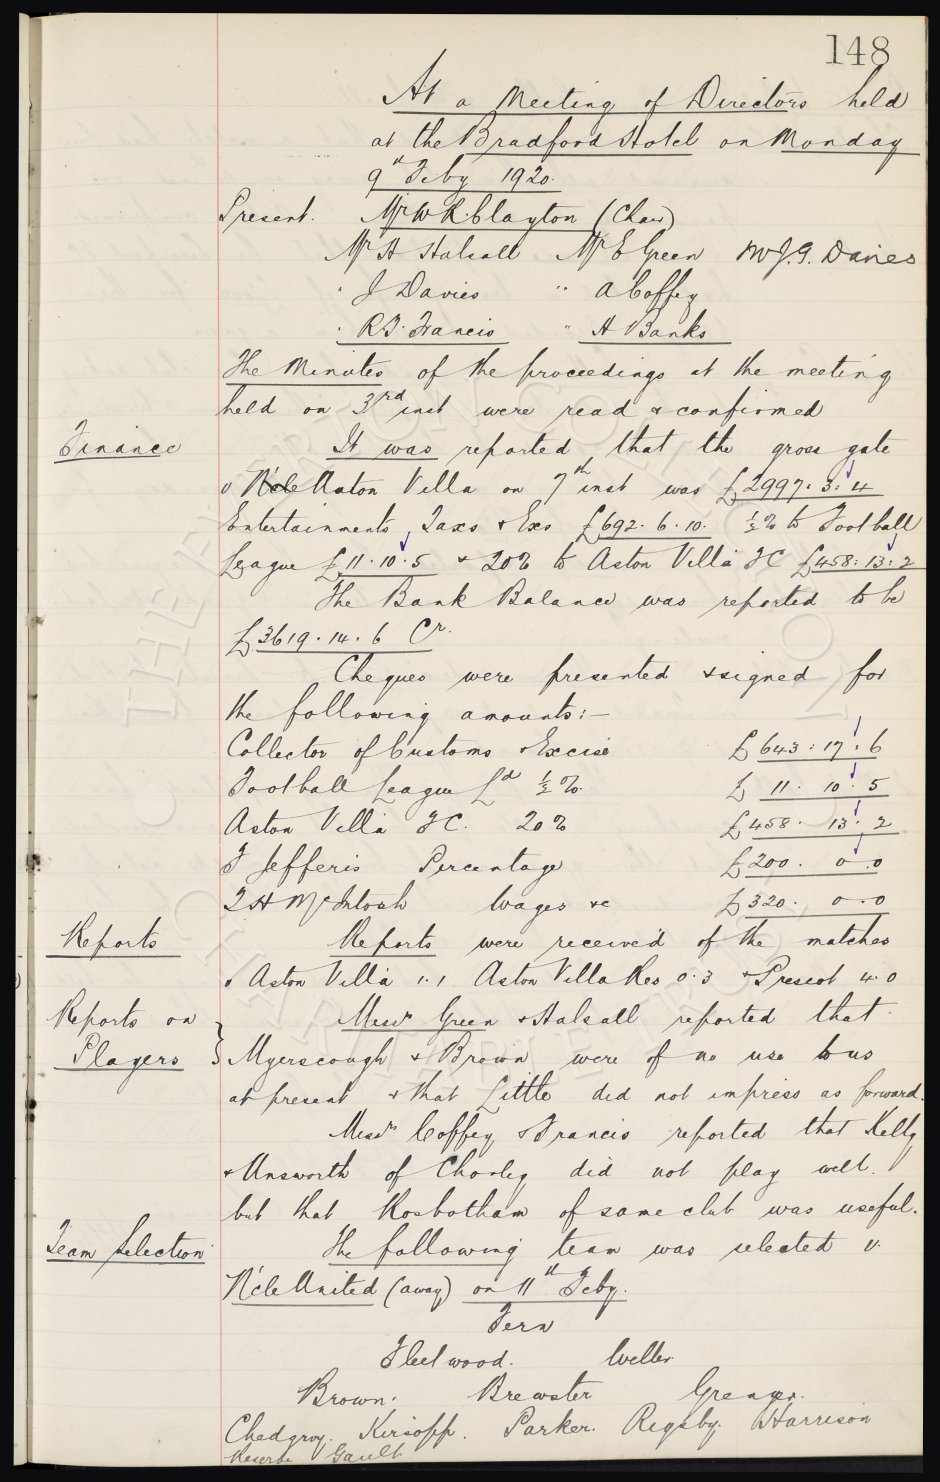 148
At a Meeting of Directors held
at the Bradford Hotel on Monday
9th Feby 1920.
Present. Mr W R Clayton (Chair)
Mr H Halsall Mr E Green Mr J.G. Davies
" J Davies " A Coffey
" R.B. Francis " H Banks
The Minutes of the proceedings at the meeting
held on 3rd inst were read & confirmed
Finance It was reported that the gross gate
v N'cle Aston Villa on 7th inst was £2997. 3. 4
Entertainments Taxs & Exs £692. 6. 10. ½% to Football
League £11. 10. 5 & 20% to Aston Villa FC £458: 13: 2
The Bank Balance was reported to be
£3619. 14. 6 Cr.
Cheques were presented & signed for
the following amounts:-
Collector of Customs & Excise £643: 17: 6
Football League Ld ½%. £ 11. 10. 5
Aston Villa FC. 20% £458. 13. 2
F Jefferis Percentage £200. 0. 0
T H McIntosh Wages &c £320. 0. 0
Reports Reports were received of the matches
v Aston Villa 1.1 Aston Villa Res 0.3 & Prescot 4.0
Reports on Messrs Green & Halsall reported that
Players Myerscough & Brown were of no use to us
at present & that Little did not impress as forward.
Messrs Coffey & Francis reported that Kelly
& Unsworth of Chorley did not play well.
but that Rosbotham of same club was useful.
Team Selection The following team was selected v.
N'cle United (away) on 11th Feby.
Fern
Fleetwood. Weller
Brown. Brewster Grenyer.
Chedgzoy. Kirsopp. Parker. Rigsby. Harrison
Reserve Gault